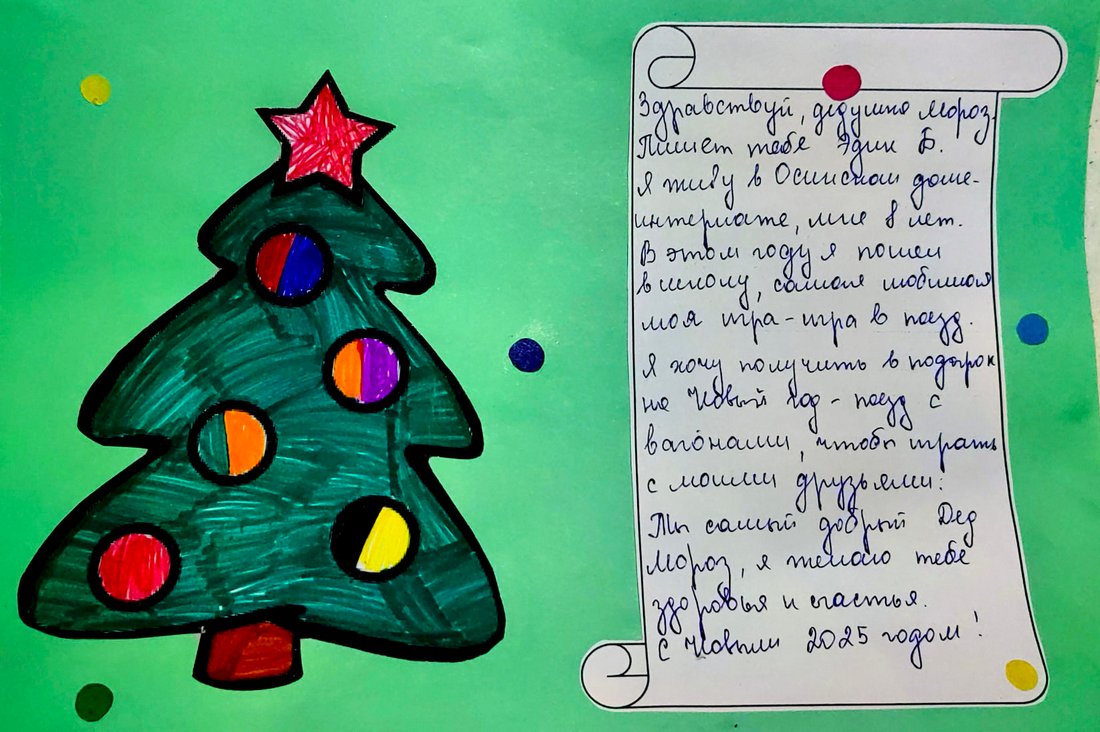 Здравствуй, дедушка Мороз.
Пишет тебе Эдик Б.
Я живу в Осинском доме-
интернате, мне 8 лет.
В этом году я пошел
в школу, самая любимая
моя игра-игра в поезд.
Я хочу получить в подарок
на Новый год - поезд с
вагонами, чтобы играть
с моими друзьями.
Ты самый добрый Дед
Мороз, я желаю тебе
здоровья и счастья.
С Новым 2025 годом!